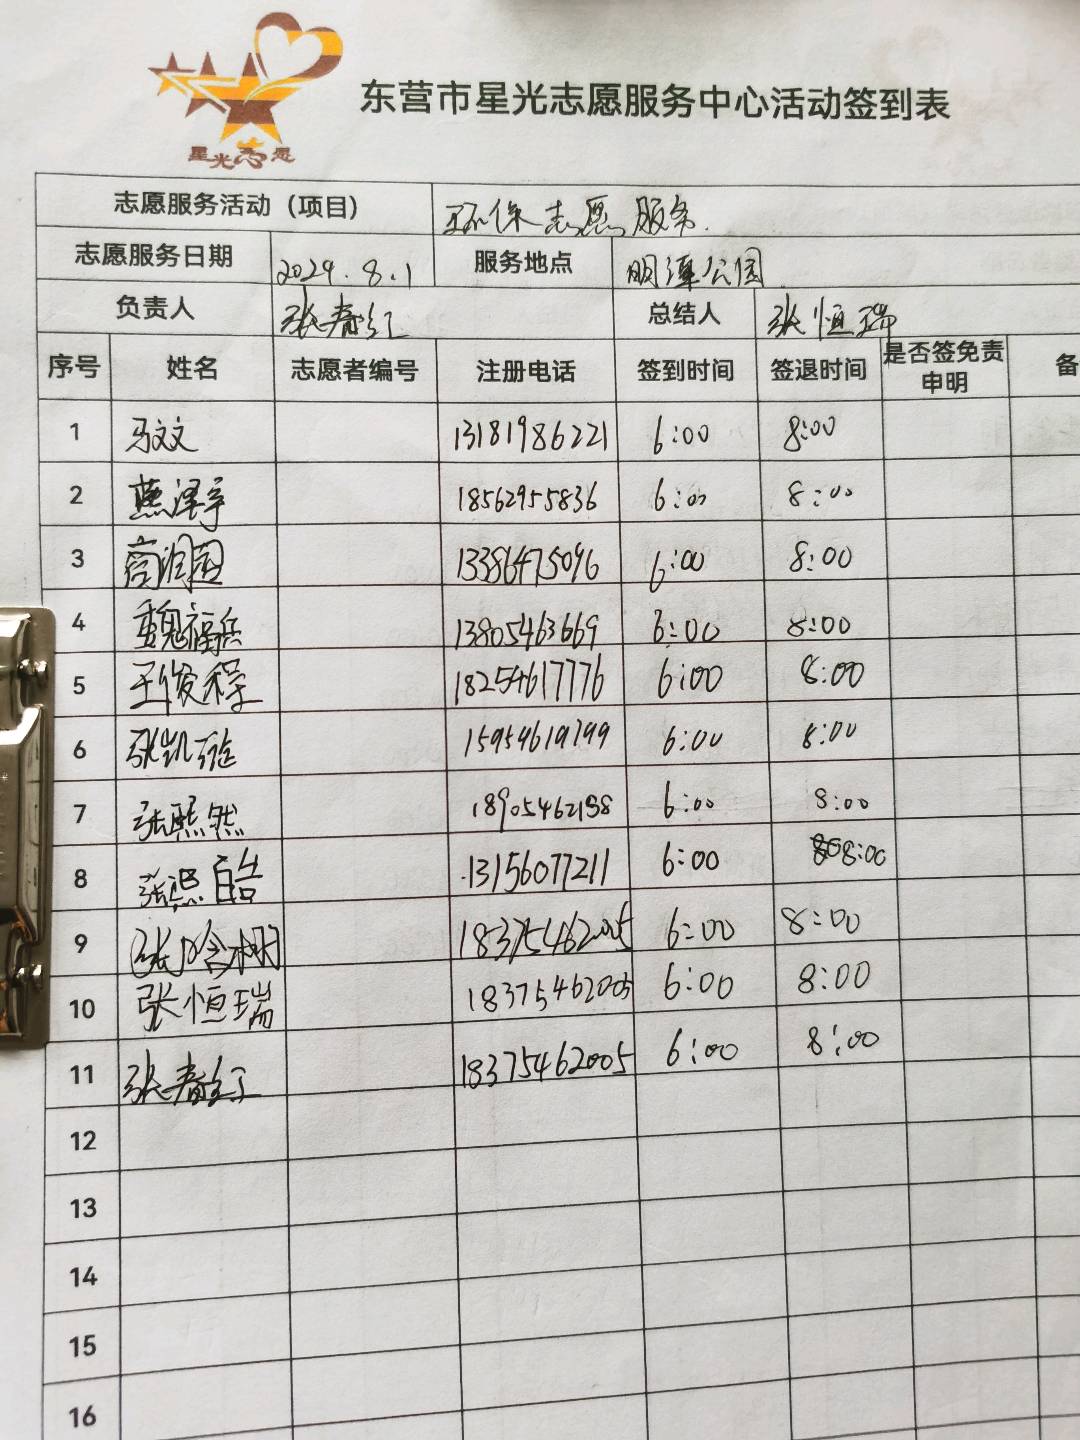 星光志愿
东营市星光志愿服务中心活动签到表
志愿服务活动（项目） 环保志愿服务.
志愿服务日期 2024.8.1 服务地点 明潭公园
负责人 张春红 总结人 张恒瑞
序号 姓名 志愿者编号 注册电话 签到时间 签退时间 是否签免责申明 备
1 马文文 13181986221 6:00 8:00
2 燕泽宇 18562955836 6:00 8:00
3 13386475096 6:00 8:00
4 魏福兵 13805463669 6:00 8:00
5 王俊程 18254617776 6:00 8:00
6 张凯 15954619799 6:00 8:00
7 张熙然 18905462198 6:00 8:00
8 张熙皓 13156077211 6:00 8:00
9 张晗 18375462005 6:00 8:00
10 张恒瑞 18375462005 6:00 8:00
11 张春红 18375462005 6:00 8:00
12
13
14
15
16